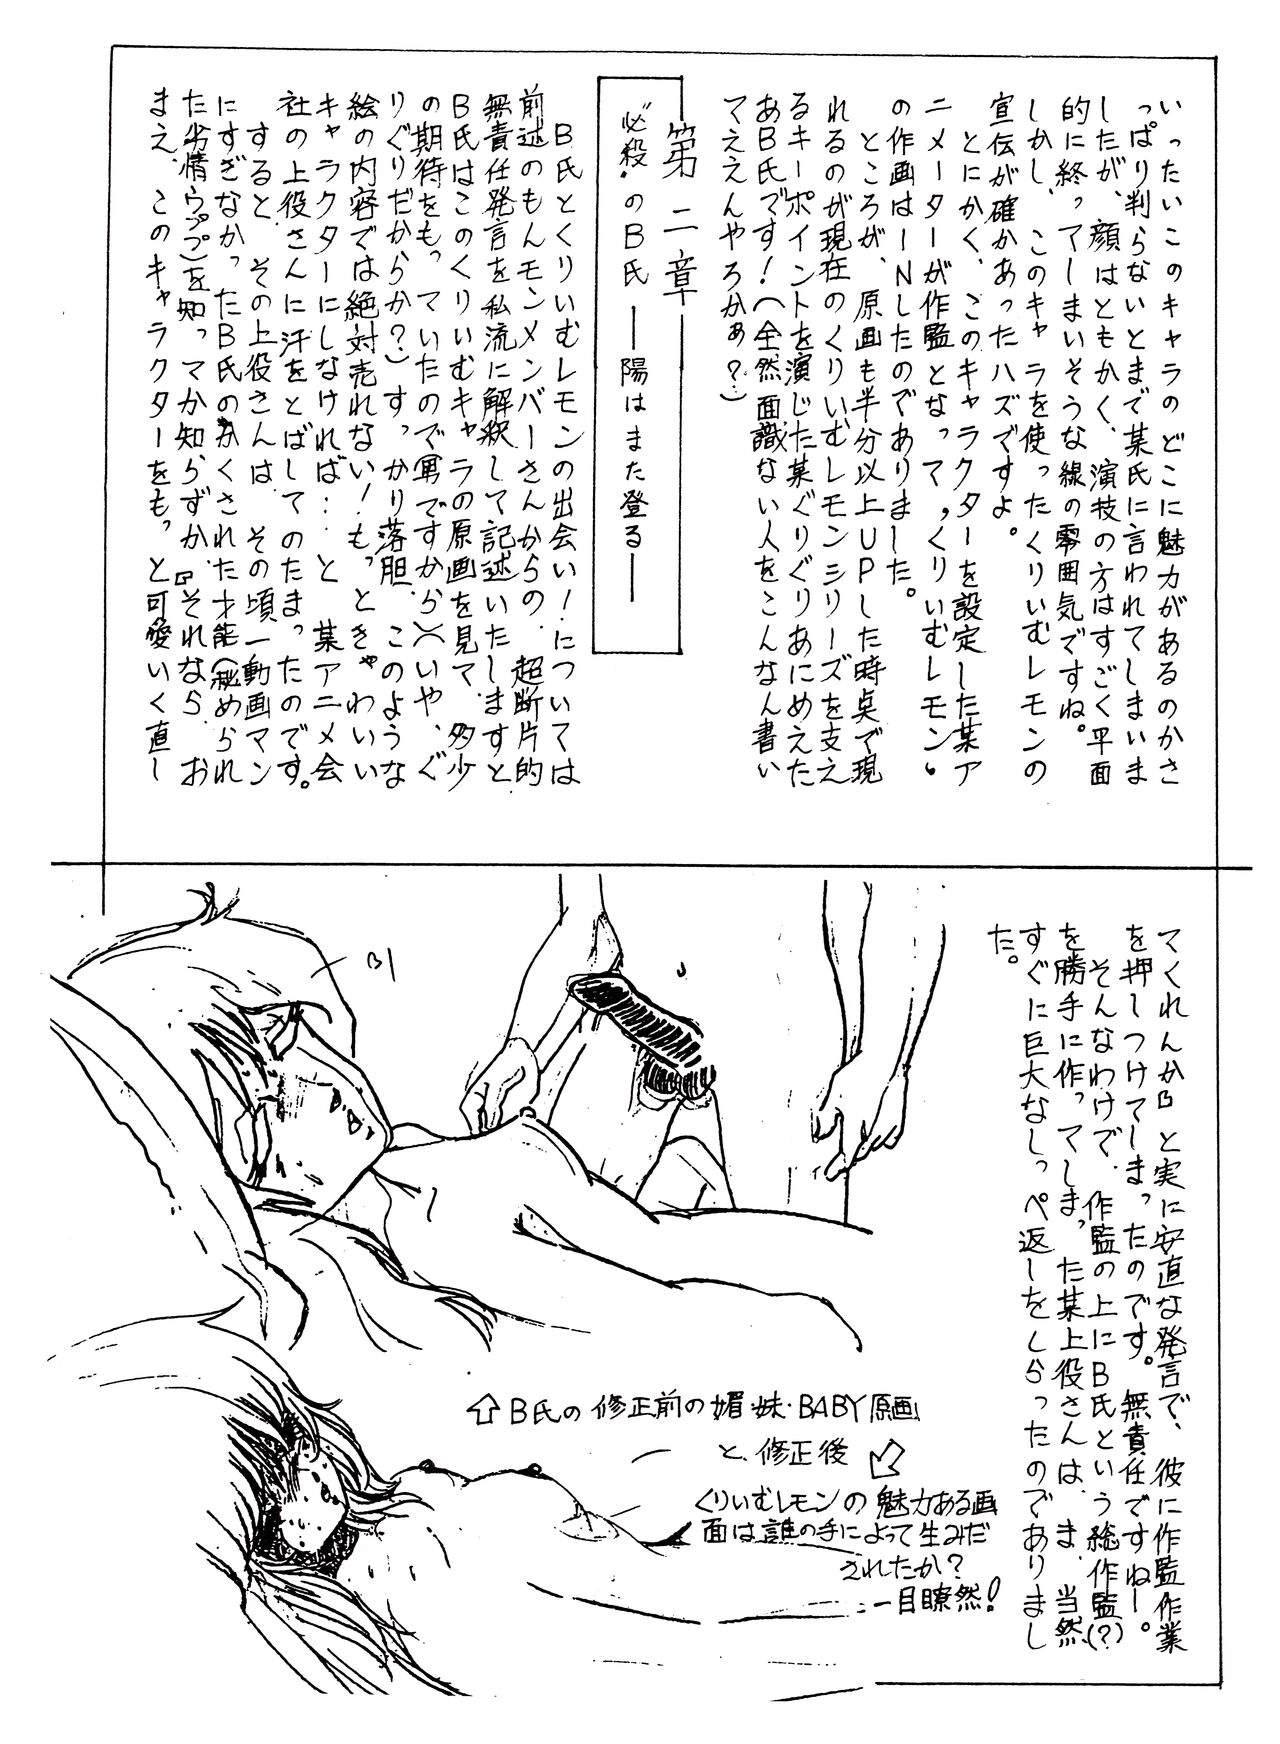 いったいこのキャラのどこに魅力があるのかさ
っぱり判らないとまで某氏に言われてしまいま
したが、顔はともかく、演技の方はすごく平面
的に終ってしまいそうな線の雰囲気ですね。
しかし、このキャラを使ったくりいむレモンの
宣伝が確かあったハズですよ。
とにかく、このキャラクターを設定した某ア
ニメーターが作監となって、くりいむレモン
の作画はINしたのでありました。
ところが、原画も半分以上UPした時点で現
れるのが現在のくりいむレモンシリーズを支え
るキーポイントを演じた某ぐりぐりあにめえた
あB氏です!(全然面識ない人をこんなん書い
てええんやろかぁ?)
第二章
“必殺”のB氏 ——陽はまた登る——
B氏とくりいむレモンの出会い!については
前述のもんモンメンバーさんからの、超断片的
無責任発言を私流に解釈して記述いたしますと
B氏はこのくりいむキャラの原画を見て、多少
の期待をも、っていたので(男ですから)(いや、ぐ
りぐりだからか?)すっかり落胆、このような
絵の内容では絶対売れない!もっときゃわいい
キャラクターにしなければ…と 某アニメ会
社の上役さんに汗をとばしてのたまったのです。
すると、その上役さんは、その頃一動画マン
にすぎなかったB氏のかくされた才能(秘められ
た劣情ゥププ)を知ってか知らずか『それなら、お
まえ、このキャラクターをもっと可愛いく直し
てくれんか』と実に安直な発言で、彼に作監作業
を押しつけてしまったのです。無責任ですねー。
そんなわけで、作監の上にB氏という総作監(?)
を勝手に作ってしまった某上役さんは、ま、当然
すぐに巨大なしっぺ返しをくらったのでありまし
た。
B1
⇧B氏の修正前の媚・妹・BABY原画
と、修正後
くりいむレモンの魅力ある画
面は誰の手によって生みだ
されたか?
一目瞭然!